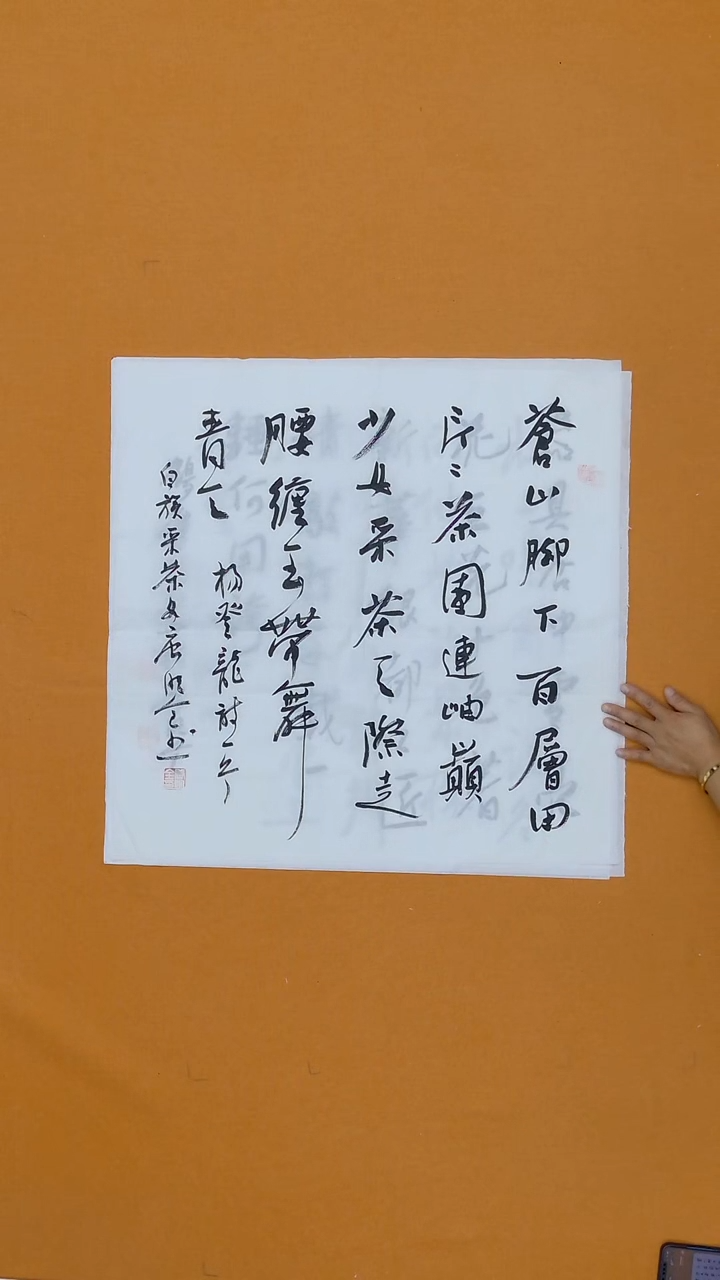 蒼山腳下百層田
片々茶園連岫巔
少女采茶天際走
腰纏玉帶舞
青天
楊登龍詩一首
白族采茶女